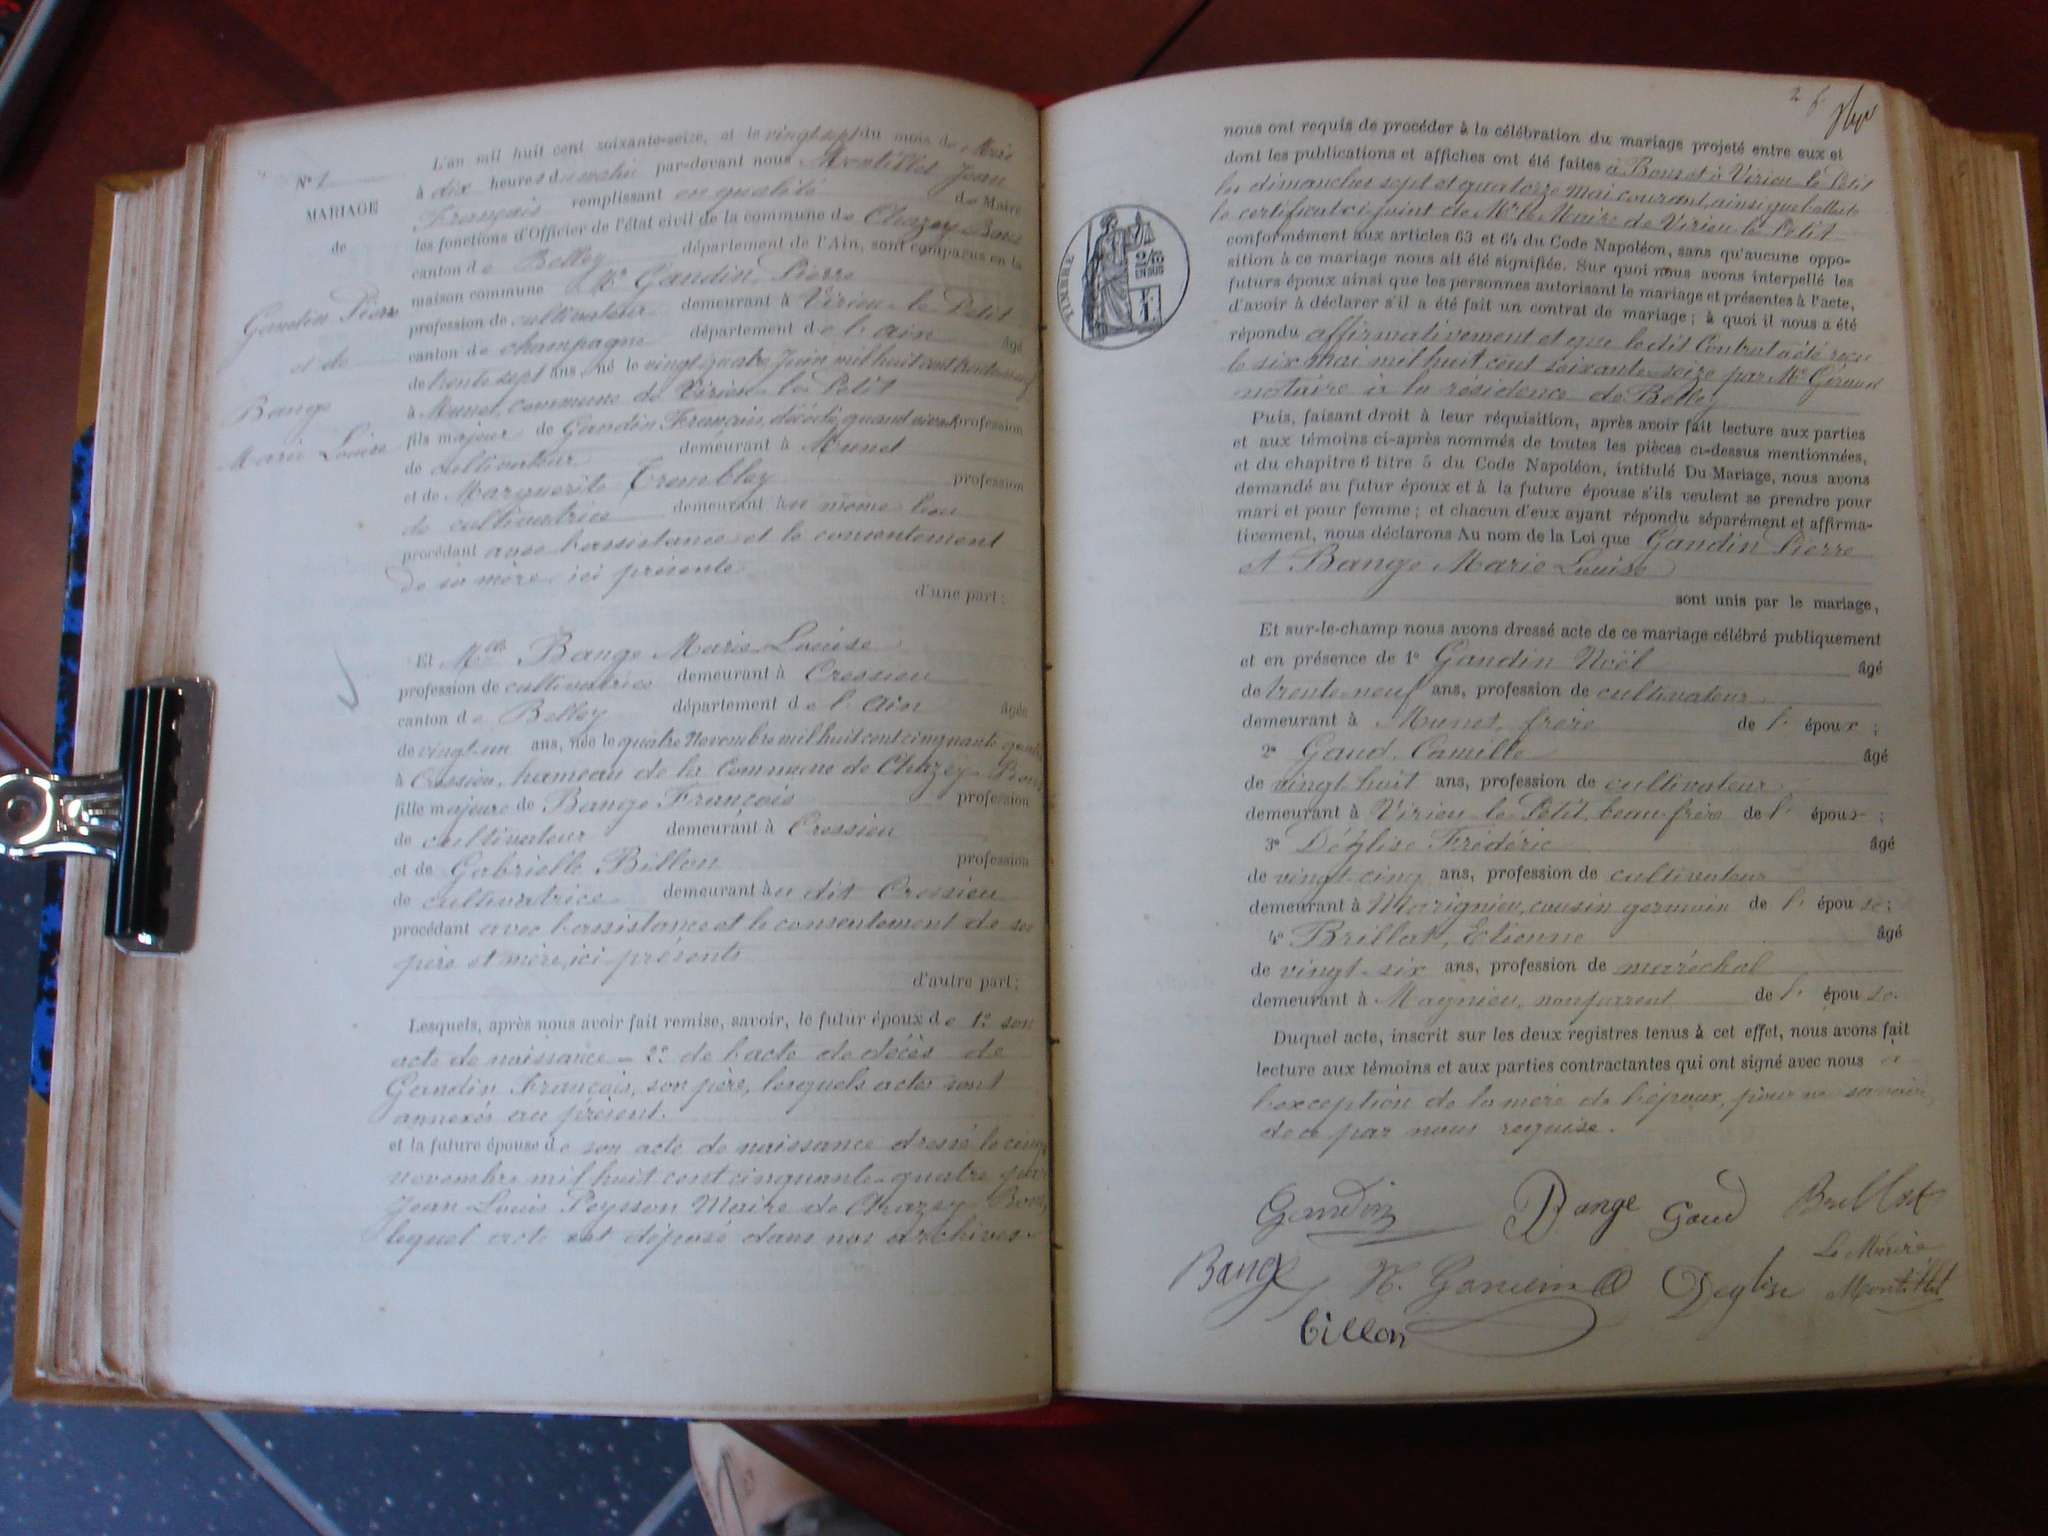 N° 1
MARIAGE
de
Gandin Pierre
et de
Bange
Marie Louise
L'an mil huit cent soixante-seize, et le vingt sept du mois de Mai
à dix heures du matin par-devant nous Montillet Jean
François remplissant en qualité de Maire
les fonctions d'Officier de l'état civil de la commune de Chazey-Bons
canton de Belley département de l'Ain, sont comparus en la
maison commune Mr Gandin Pierre
profession de cultivateur demeurant à Virieu-le-Petit
canton de champagne département de l'ain âgé
de trente sept ans, né le vingt quatre Juin mil huit cent trente neuf
à Munet, commune de Virieu-le-Petit
fils majeur de Gandin François, décédé, quand vivait profession
de cultivateur demeurant à Munet
et de Marguerite Trembley profession
de cultivatrice demeurant au même lieu
procédant avec l'assistance et le consentement
de sa mère, ici présente
d'une part;
Et Mlle Bange Marie Louise
profession de cultivatrice demeurant à Cressieu
canton de Belley département de l'ain âgée
de vingt-un ans, née le quatre Novembre mil huit cent cinquante quatre
à Cressieu, hameau de la Commune de Chazey-Bons
fille majeure de Bange François profession
de cultivateur demeurant à Cressieu
et de Gabrielle Billon profession
de cultivatrice demeurant au dit Cressieu
procédant avec l'assistance et le consentement de ses
père et mère, ici présents
d'autre part;
Lesquels, après nous avoir fait remise, savoir, le futur époux de 1° son
acte de naissance - 2° de l'acte de décès de
Gandin François, son père, lesquels actes sont
annexés au présent.
et la future épouse de son acte de naissance dressé le cinq
novembre mil huit cent cinquante-quatre par
Jean Louis Peysson Maire de Chazey-Bons,
lequel acte est déposé dans nos archives
2 f
nous ont requis de procéder à la célébration du mariage projeté entre eux et
dont les publications et affiches ont été faites à Bons et à Virieu-le-Petit
les dimanches sept et quatorze Mai courant, ainsi que l'atteste
le certificat ci-joint de Mr le Maire de Virieu-le-Petit
conformément aux articles 63 et 64 du Code Napoléon, sans qu'aucune oppo-
sition à ce mariage nous ait été signifiée. Sur quoi nous avons interpellé les
futurs époux ainsi que les personnes autorisant le mariage et présentes à l'acte,
d'avoir à déclarer s'il a été fait un contrat de mariage; à quoi il nous a été
répondu affirmativement et que le dit Contrat a été reçu
le six Mai mil huit cent soixante-seize par Me
notaire à la résidence de Belley
TIMBRE
2/10
EN SUS
1 f.
Puis, faisant droit à leur réquisition, après avoir fait lecture aux parties
et aux témoins ci-après nommés de toutes les pièces ci-dessus mentionnées,
et du chapitre 6 titre 5 du Code Napoléon, intitulé Du Mariage, nous avons
demandé au futur époux et à la future épouse s'ils veulent se prendre pour
mari et pour femme; et chacun d'eux ayant répondu séparément et affirma-
tivement, nous déclarons Au nom de la Loi que Gandin Pierre
et Bange Marie Louise
sont unis par le mariage,
Et sur-le-champ nous avons dressé acte de ce mariage célébré publiquement
et en présence de 1° Gandin Noël âgé
de trente-neuf ans, profession de cultivateur
demeurant à Munet, frère de l' époux;
2° Gaud, Camille âgé
de vingt huit ans, profession de cultivateur
demeurant à Virieu-le-Petit, beau-frère de l' époux;
3° Déglise Frédéric âgé
de vingt cinq ans, profession de cultivateur
demeurant à Marignieu, cousin germain de l' épouse;
4° Brillat, Etienne âgé
de vingt-six ans, profession de maréchal
demeurant à Magnieu, non parent de l' épouse.
Duquel acte, inscrit sur les deux registres tenus à cet effet, nous avons fait
lecture aux témoins et aux parties contractantes qui ont signé avec nous à
l'exception de la mère de l'époux, pour ne savoir,
de ce par nous requise.
Gandin Bange Gaud Brillat
Bange N. Gandin Deglise Le Maire
Montillet
billon